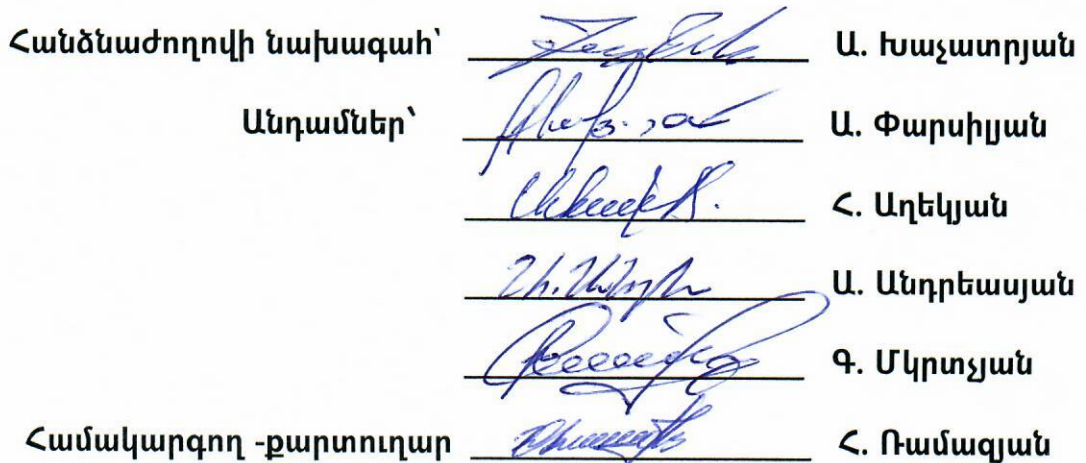 Հանձնաժողովի նախագահ՝ Ա. Խաչատրյան
Անդամներ՝ Ա. Փարսիլյան
Հ. Աղեկյան
Ա. Անդրեասյան
Գ. Մկրտչյան
Համակարգող -քարտուղար Հ. Ռամազյան